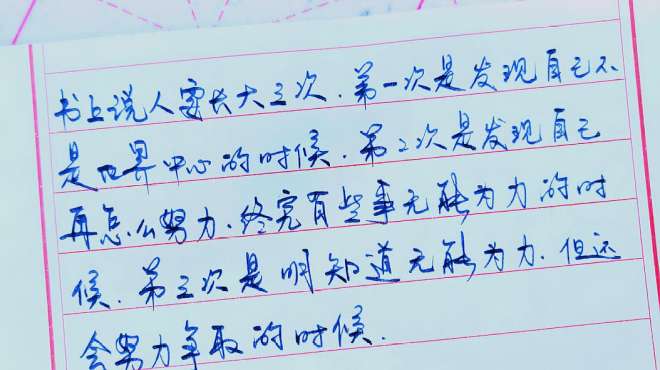 书上说人要长大三次.第一次是发现自己不
是世界中心的时候.第二次是发现自己
再怎么努力.终究有些事无能为力的时
候.第三次是明知道无能为力.但还
会努力争取的时候.